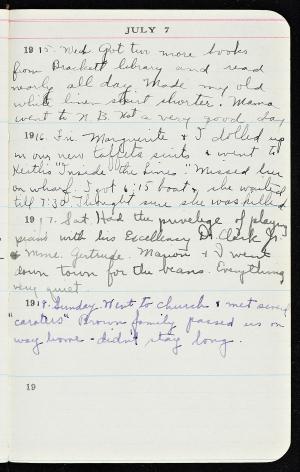 JULY 7
1915. Wed. Got two more books
from Brackett library and read
nearly all day. Made my old
white linen skirt shorter. Mama
went to N.B. Not a very good day
1916. Fri. Marguerite & I dolled up
in our new taffeta suits & went to
Keith's "Inside the Lines". Missed her
on wharf. I got 6:15 boat, she waited
till 7:30. Thought sure she was killed.
1917. Sat. Had the privelege of playing
piano with his Excellency Dr. Clark Jr.
& Mme. Gertrude. Marion & I went
down town for the beans. Everything
very quiet
1918. Sunday. Went to church & met several
Brown family passed us on
way home - didn't stay long.
19